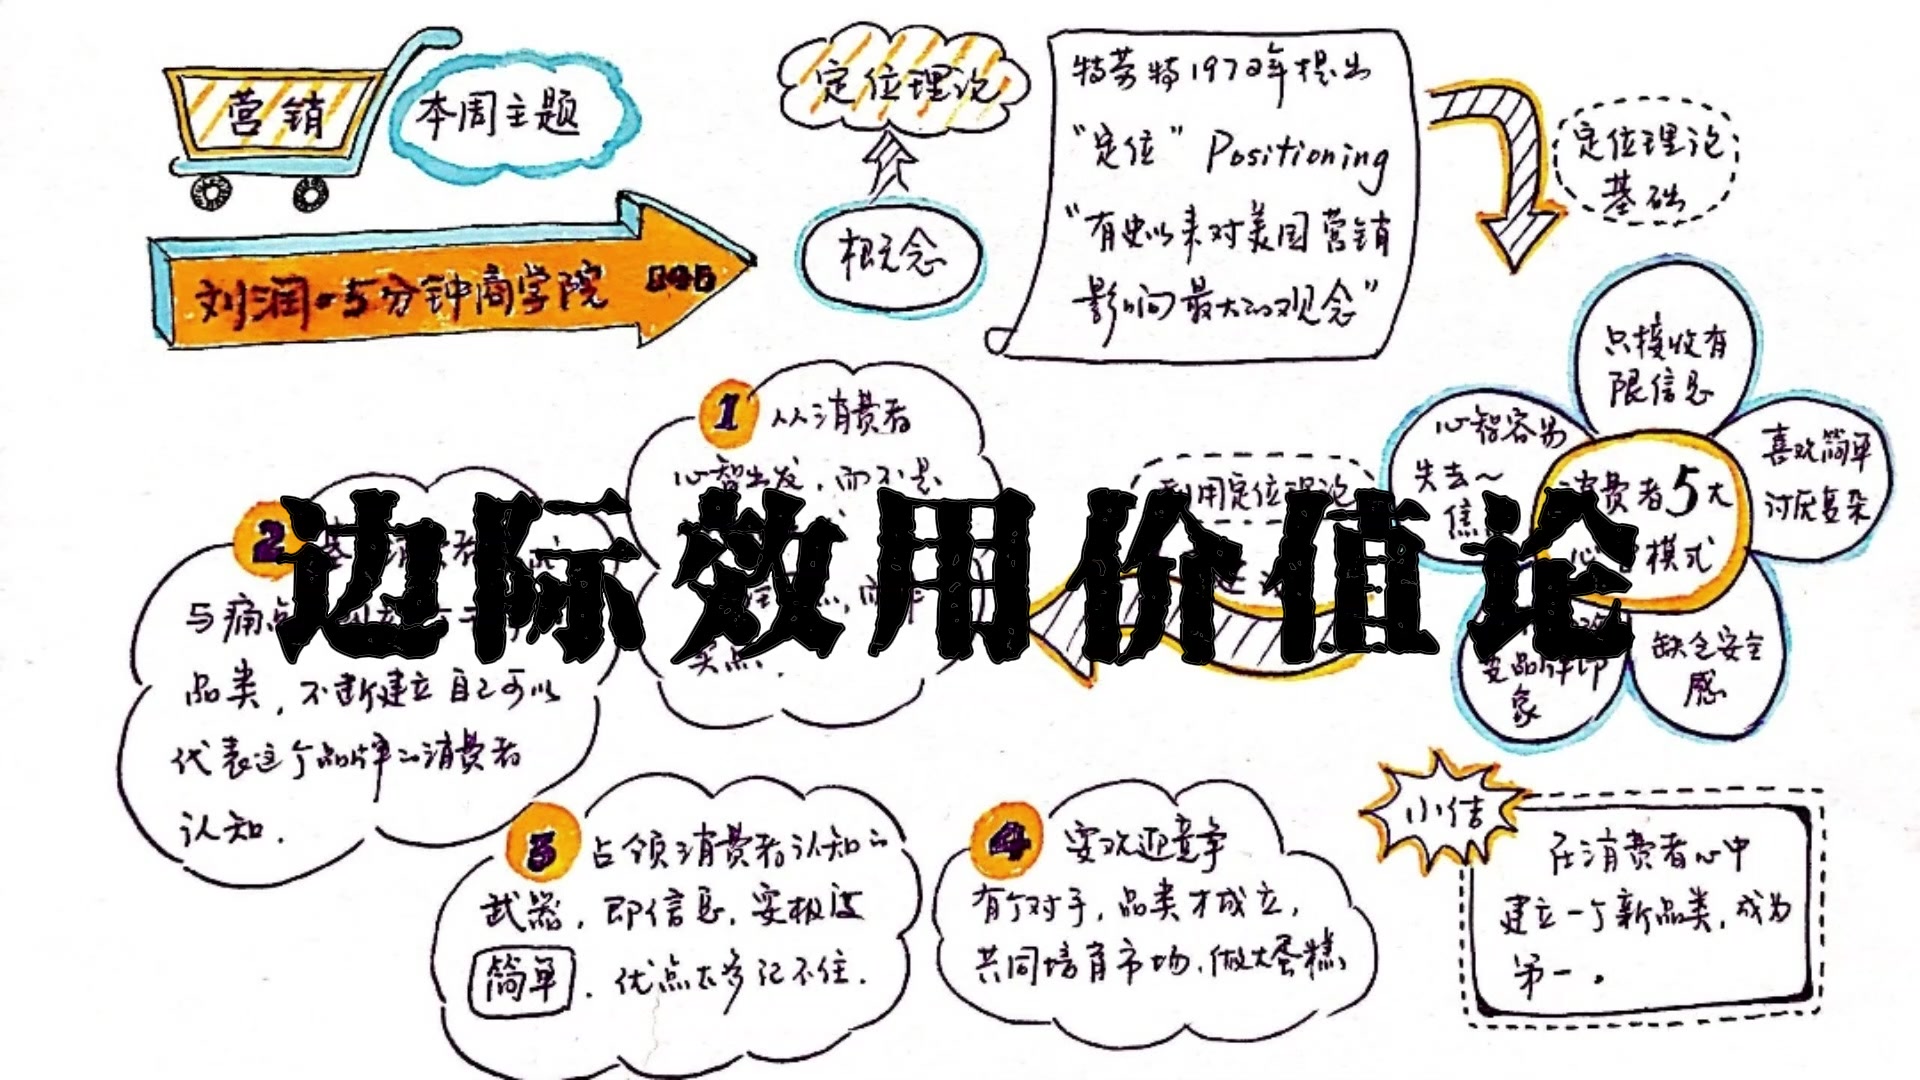 营销
本周主题
刘润·5分钟商学院
定位理论
概念
特劳特1972年提出
"定位" Positioning
"有史以来对美国营销
影响最大的观念"
定位理论
基础
只接收有
限信息
喜欢简单
讨厌复杂
缺乏安全
感
象
心智容易
失去~
焦
消费者5大
模式
利用定位理论
1 从消费者
心智出发,而不是
买点.
2
与痛点
品类,不断建立自己可以
代表这个品牌的消费者
认知.
边际效用价值论
3 占领消费者认知的
武器,即信息,要极度
简单.优点太多记不住.
4 要欢迎竞争
有个对手,品类才成立,
共同培育市场,做大蛋糕
小结
在消费者心中
建立一个新品类,成为
第一。